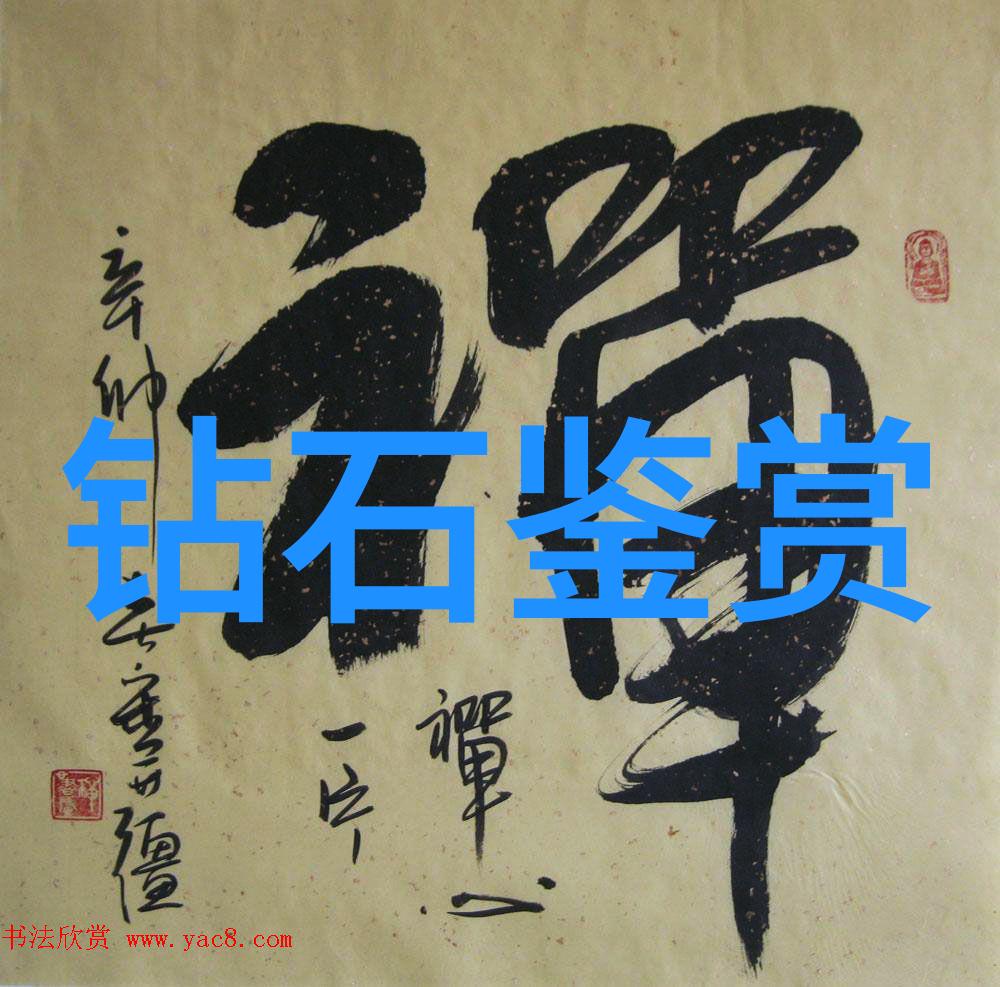 禪
钻石鉴赏
禪心
一片
辛卯
疆
书法欣赏 www.yac8.com